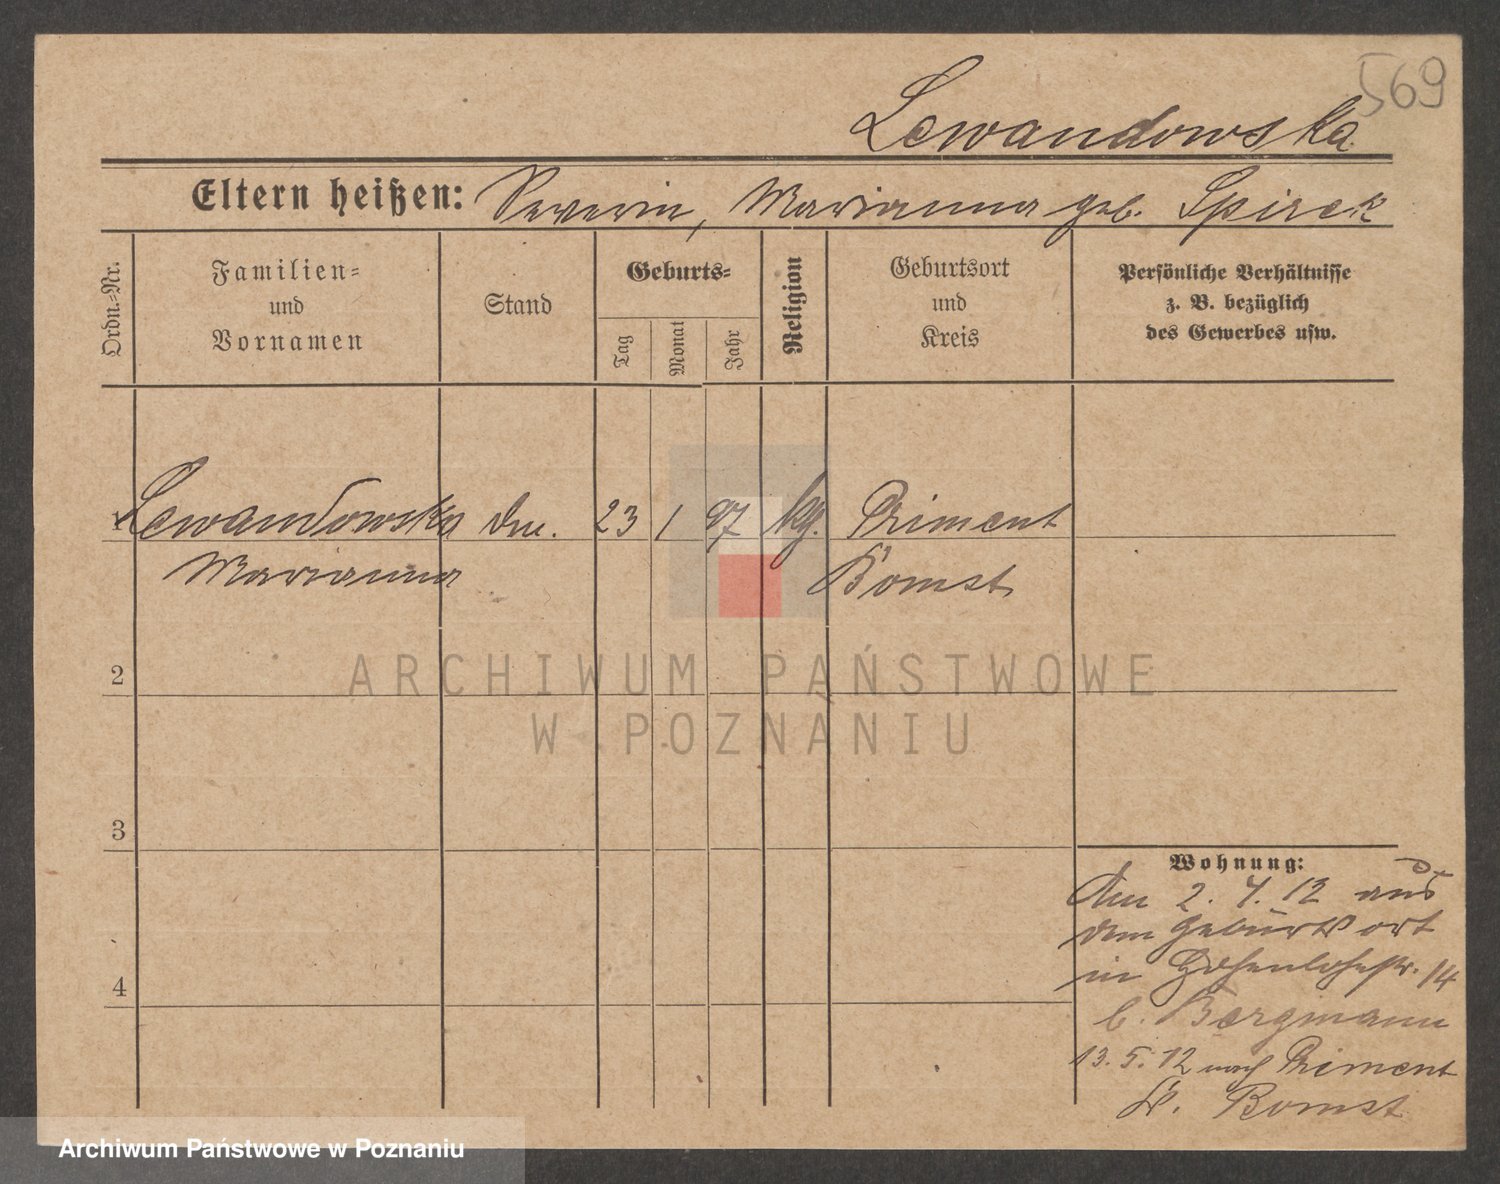 569
Lewandowska
Eltern heißen: Severin, Marianna geb. Spirek
Ordn.-Nr.
Familien-
und
Vornamen
Stand
Geburts-
Tag
Monat
Jahr
Religion
Geburtsort
und
Kreis
Persönliche Verhältnisse
z. B. bezüglich
des Gewerbes usw.
1 Lewandowska 23 1 97 Priment
Marianna Bomst
2
3
4
Wohnung:
Am 2. 4. 12 aus
dem Geburtsort
in Hohenlohestr. 14
b. Bergmann
13. 5. 12 nach Priment
Kr. Bomst
ARCHIWUM PAŃSTWOWE
W POZNANIU
Archiwum Państwowe w Poznaniu